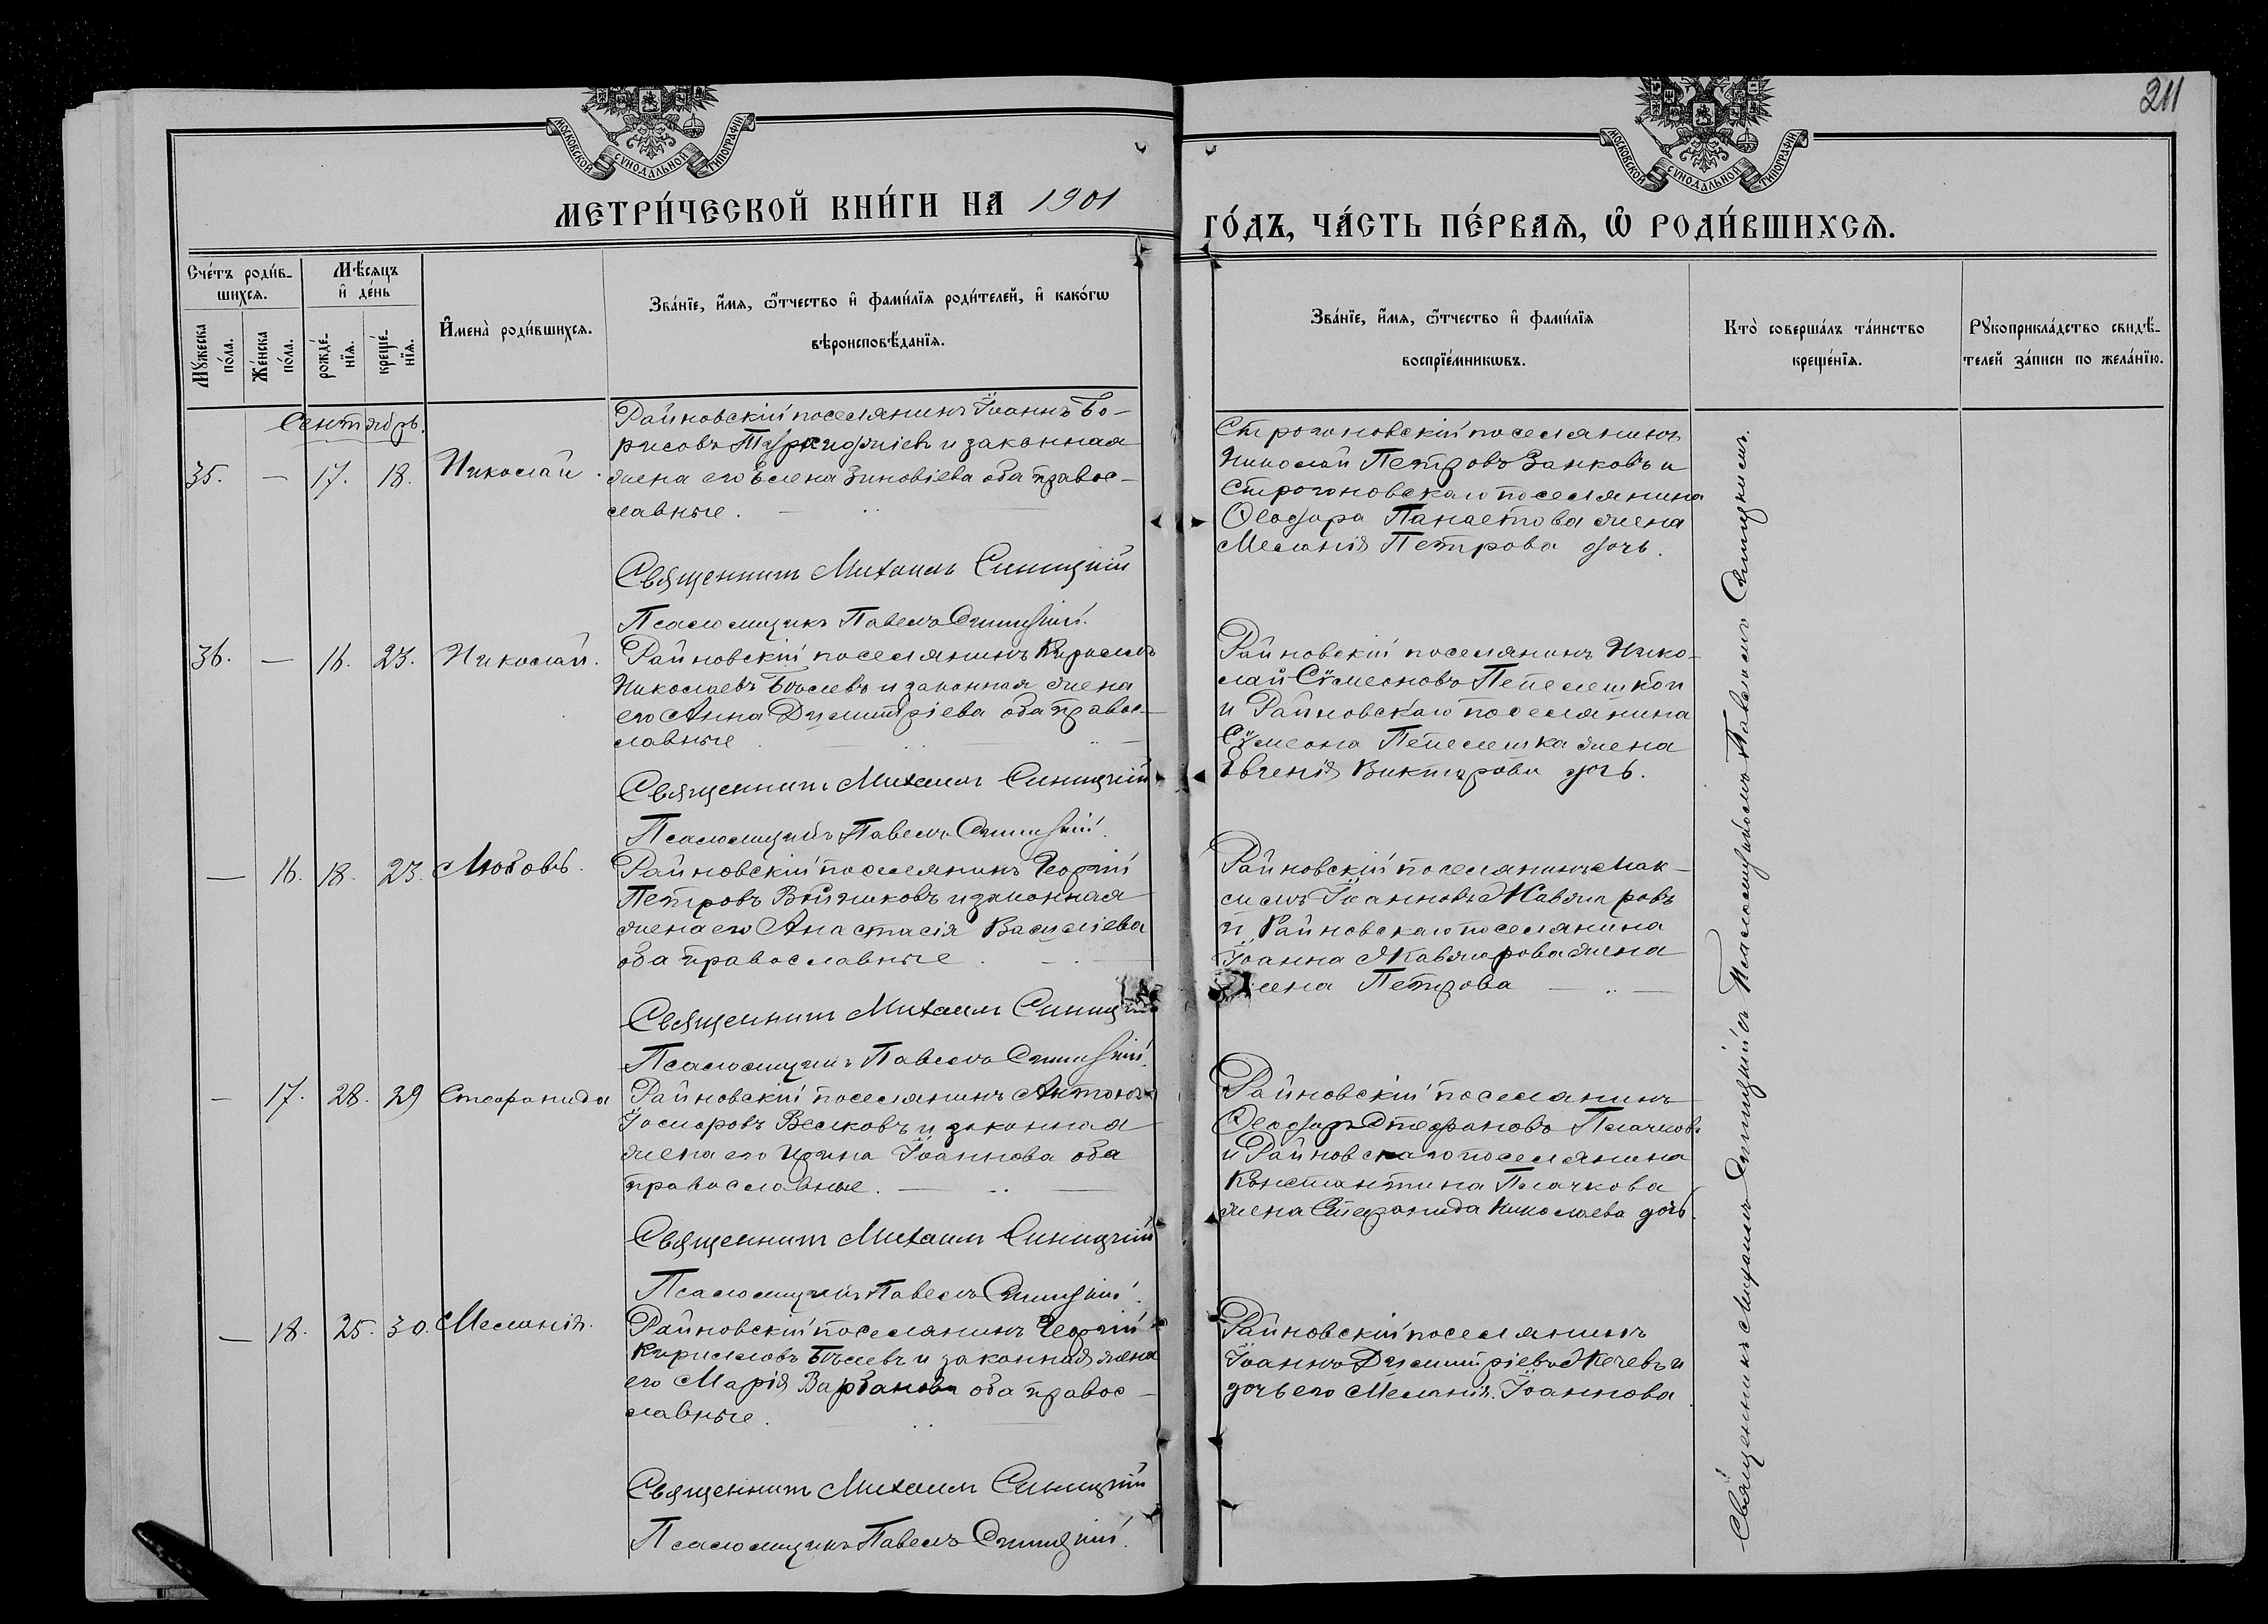 211
МОСКОВСКОЙ СѴНОДАЛЬНОЙ ТИПОГРАФІИ
МОСКОВСКОЙ СѴНОДАЛЬНОЙ ТИПОГРАФІИ
МЕТРИ́ЧЕСКОЙ КНИ́ГИ НА 1901
ГО́ДЪ, ЧА́СТЬ ПЕ́РВАѦ, Ѡ҆ РОДИ́ВШИХСѦ.
Сче́тъ роди́в-
шихсѧ.
Мꙋ́жеска по́ла.
Же́нска по́ла.
Мѣ́сѧцъ
и҆ де́нь
рожде́-
нїѧ.
креще́-
нїѧ.
И҆мена̀ роди́вшихсѧ.
Зва́нїе, и҆́мѧ, ѻ҆́тчество и҆ фами́лїѧ роди́телей, и҆ како́гѡ
вѣроисповѣ́данїѧ.
Зва́нїе, и҆́мѧ, ѻ҆́тчество и҆ фами́лїѧ
воспрїе́мникѡвъ.
Кто̀ соверша́лъ та́инство
креще́нїѧ.
Рꙋкоприкла́дство свидѣ́-
телей за́писи по жела́нїю.
Сентябрь.
35. — 17. 18. Николай.
Райновскій поселянинъ Іоаннъ Бо-
рисовъ и законная
жена его Елена Зиновіева оба правос-
славные.
Священникъ Михаилъ Синицкій
Псаломщикъ Павелъ Синицкій.
Строгоновскій поселянинъ
Николай Петровъ Занковъ и
Строгоновскаго поселянина
Ѳеодора Панаетова жена
Меланія Петрова дочь.
36. — 16. 23. Николай.
Райновскій поселянинъ Кириллъ
Николаевъ Бѣлевъ и законная жена
его Анна Димитріева оба правос-
лавные
Священникъ Михаилъ Синицкій
Псаломщикъ Павелъ Синицкій.
Райновскій поселянинъ Нико-
лай Сѵмеоновъ Пепелешкои
и Райновскаго поселянина
Сѵмеона Пепелешка жена
Евгенія Викторова дочь.
— 16. 18. 23. Любовь.
Райновскій поселянинъ Георгій
Петровъ и законная
жена его Анастасія Василіева
оба православные.
Священникъ Михаилъ Синицкій
Псаломщикъ Павелъ Синицкій.
Райновскій поселянинъ Мак-
симъ Іоанновъ Жавжаровъ
и Райновскаго поселянина
Іоанна Жавжарова жена
Елена Петрова
— 17. 28. 29 Стефанида
Райновскій поселянинъ Антоній
Велковъ и законная
жена его Ирина Іоаннова оба
православные.
Священникъ Михаилъ Синицкій
Псаломщикъ Павелъ Синицкій.
Райновскій поселянинъ
Ѳеодоръ Стефановъ Плачковъ
и Райновскаго поселянина
Константина Плачкова
жена Стефанида Николаева дочь.
— 18. 25. 30. Меланія.
Райновскій поселянинъ Георгій
Кирилловъ Бѣлевъ и законная жена
его Марія Варбанова оба правос-
лавные.
Священникъ Михаилъ Синицкій
Псаломщикъ Павелъ Синицкій.
Райновскій поселянинъ
Іоаннъ Димитріевъ Жечевъ и
дочь его Меланія Іоаннова
Священникъ Михаилъ Синицкій съ Псаломщикомъ Павломъ Синицкимъ.